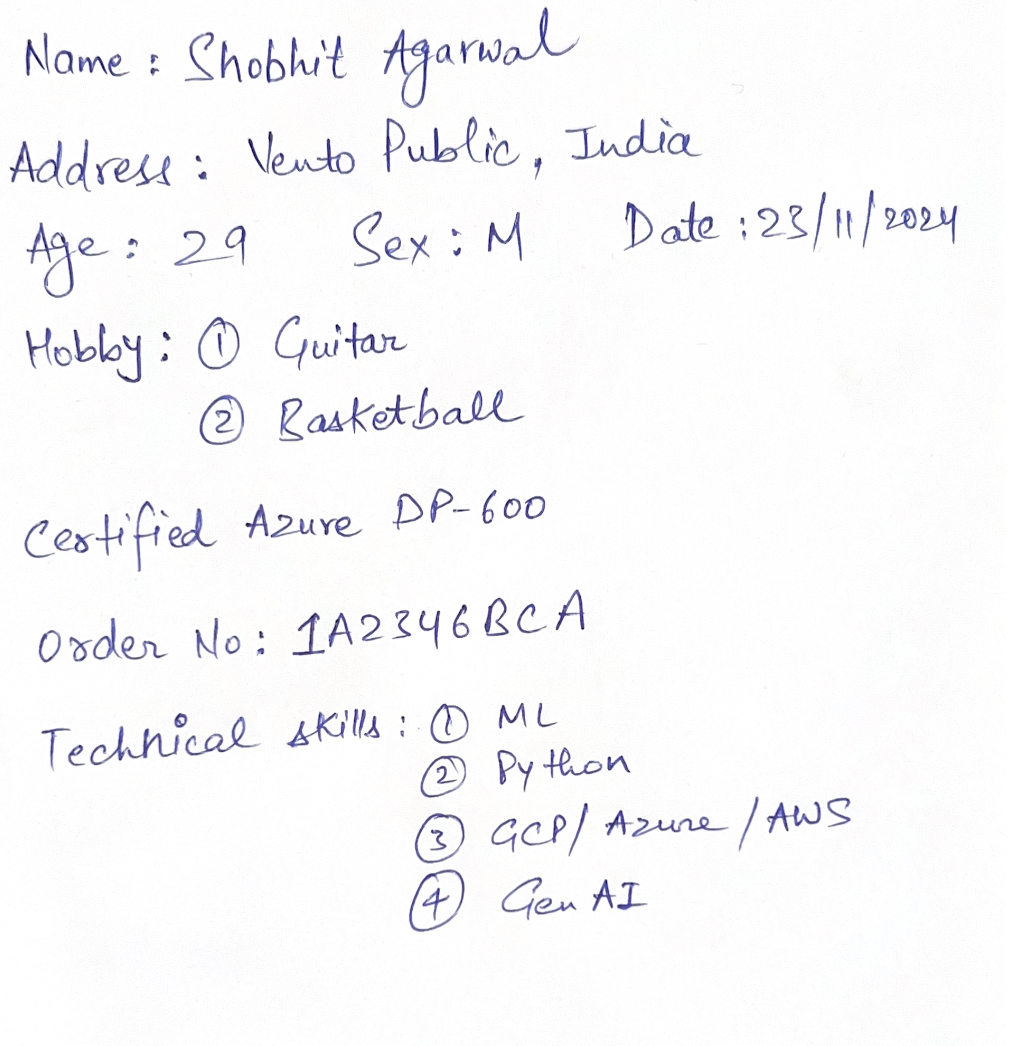 Name : Shobhit Agarwal
Address : Vento Public, India
Age : 29 Sex : M Date : 23/11/2024
Hobby : ① Guitar
② Basketball
Certified Azure DP-600
Order No : 1A2346BCA
Technical skills : ① ML
② Python
③ GCP/ Azure / AWS
④ Gen AI